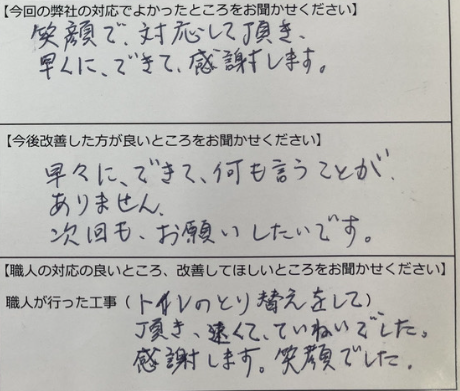 【今回の弊社の対応でよかったところをお聞かせください】
笑顔で、対応して頂き、
早くに、できて、感謝します。
【今後改善した方が良いところをお聞かせください】
早々に、できて、何も言うことが、
ありません、
次回も、お願いしたいです。
【職人の対応の良いところ、改善してほしいところをお聞かせください】
職人が行った工事（トイレのとり替えをして）
頂き、速くて、ていねいでした。
感謝します。笑顔でした。